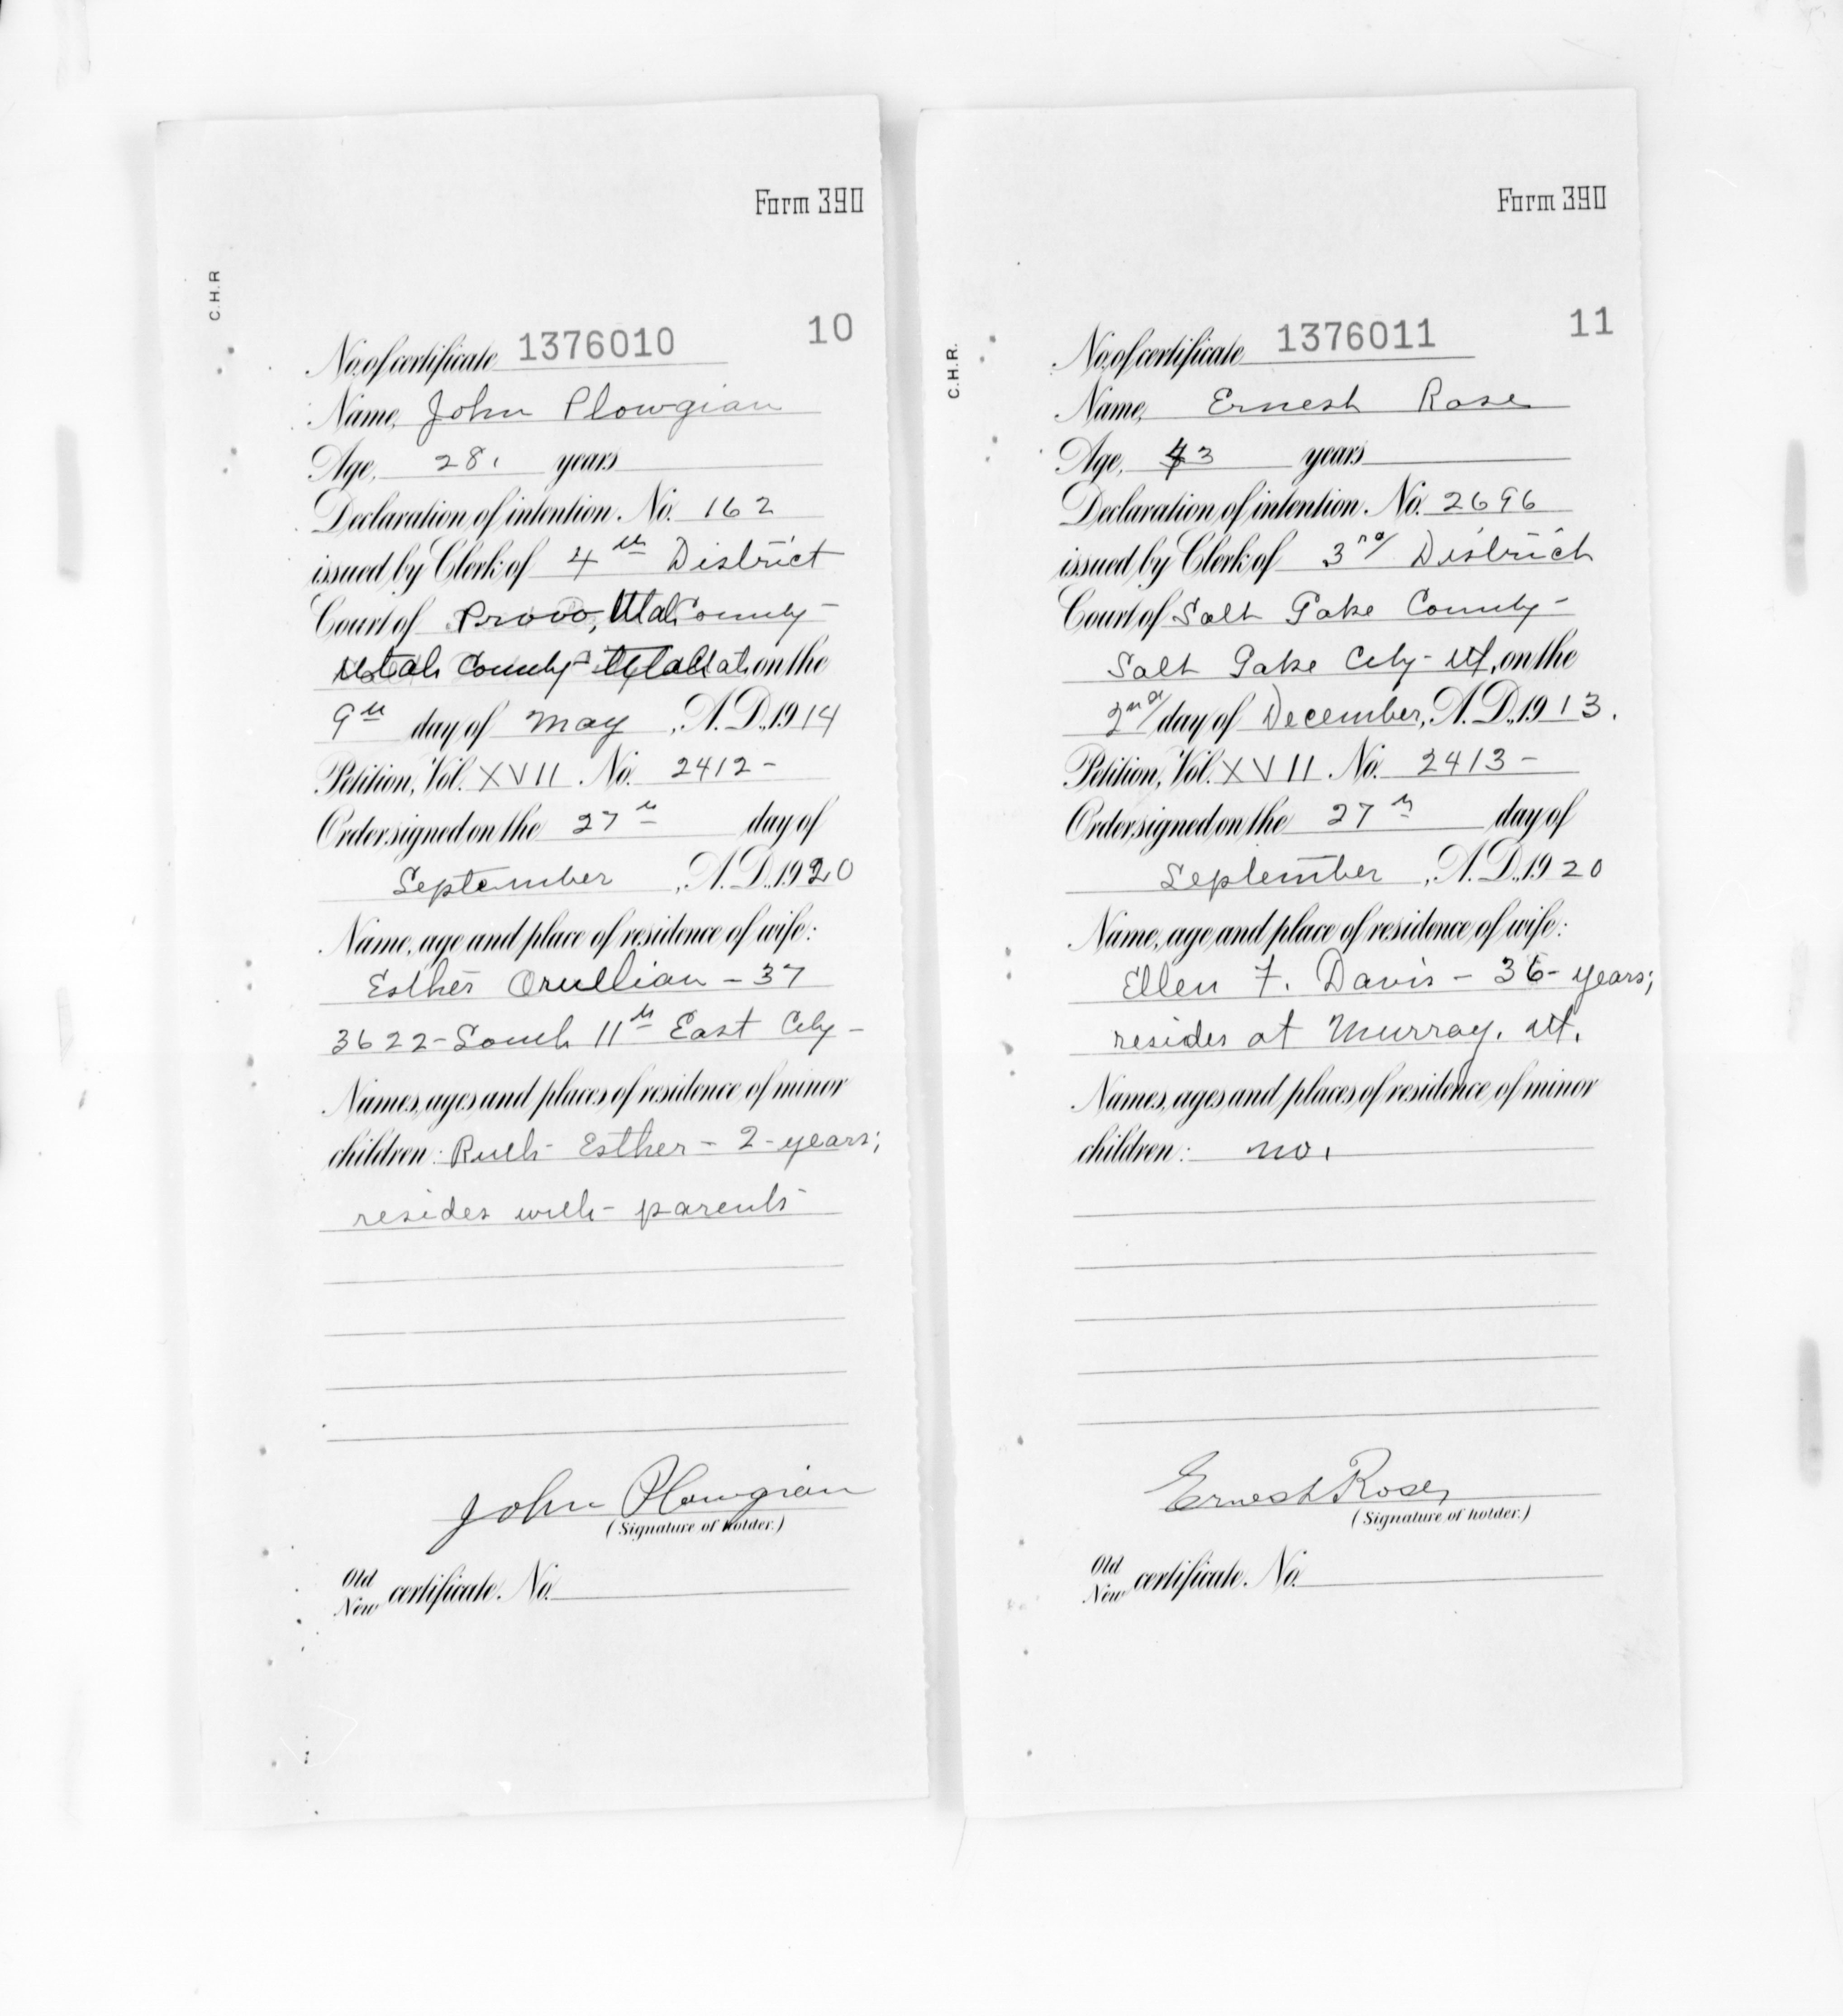 Form 390
C.H.R
10
No. of certificate 1376010
Name, John Plowgian
Age, 28. years
Declaration of intention. No. 162
issued by Clerk of 4th District
Court of Provo, Utah County -
Utah County at, on the
9th day of May, A.D. 1914
Petition, Vol. XVII. No. 2412 -
Order signed on the 27th day of
September, A.D. 1920
Name, age and place of residence of wife:
Esther Orullian - 37
3622 - South 11th East City -
Names, ages and places of residence of minor
children: Ruth Esther - 2 - years;
resides with - parents
John Plowgian
(Signature of holder.)
Old
New certificate. No.
Form 390
C.H.R.
11
No. of certificate 1376011
Name, Ernest Rose
Age, 43 years
Declaration of intention. No. 2696
issued by Clerk of 3rd District
Court of Salt Lake County -
Salt Lake City - Ut, on the
2nd day of December, A.D. 1913.
Petition, Vol. XVII. No. 2413 -
Order signed on the 27th day of
September, A.D. 1920
Name, age and place of residence of wife:
Ellen F. Davis - 36 - years;
resides at Murray. Ut.
Names, ages and places of residence of minor
children: no.
Ernest Rose
(Signature of holder.)
Old
New certificate. No.